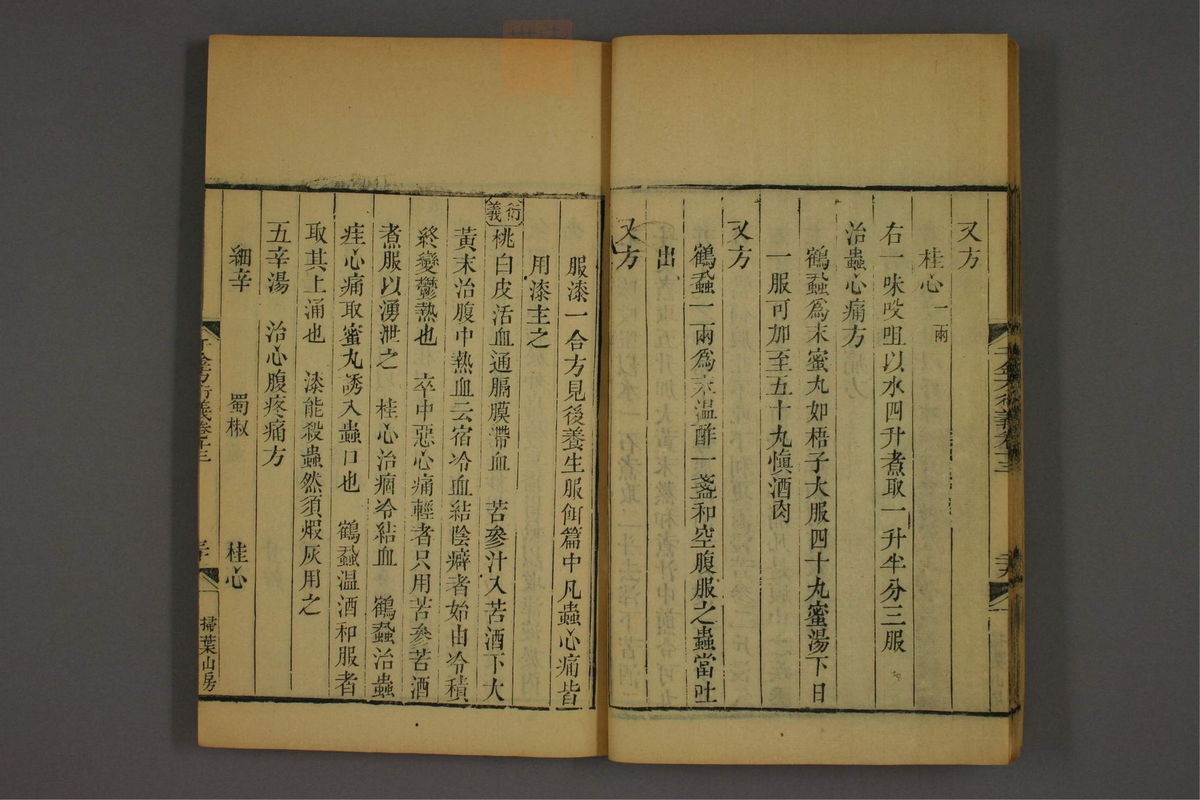 又方
桂心一兩
右一味㕮咀以水四升煮取一升半分三服
治蟲心痛方
鶴蝨爲末蜜丸如梧子大服四十丸蜜湯下日
一服可加至五十丸愼酒肉
又方
鶴蝨一兩爲末温酢一盞和空腹服之蟲當吐
出
又方
服漆一合方見後養生服餌篇中凡蟲心痛皆
用漆主之
衍義
桃白皮活血通膈膜滯血 苦參汁入苦酒下大
黃末治腹中熱血云宿冷血結陰癖者始由冷積
終變鬱熱也 卒中惡心痛輕者只用苦參苦酒
煮服以湧泄之 桂心治痼冷結血 鶴蝨治蟲
疰心痛取蜜丸誘入蟲口也 鶴蝨温酒和服者
取其上涌也 漆能殺蟲然須煅灰用之
五辛湯 治心腹疼痛方
細辛 蜀椒 桂心
千金方衍義卷十三
掃葉山房